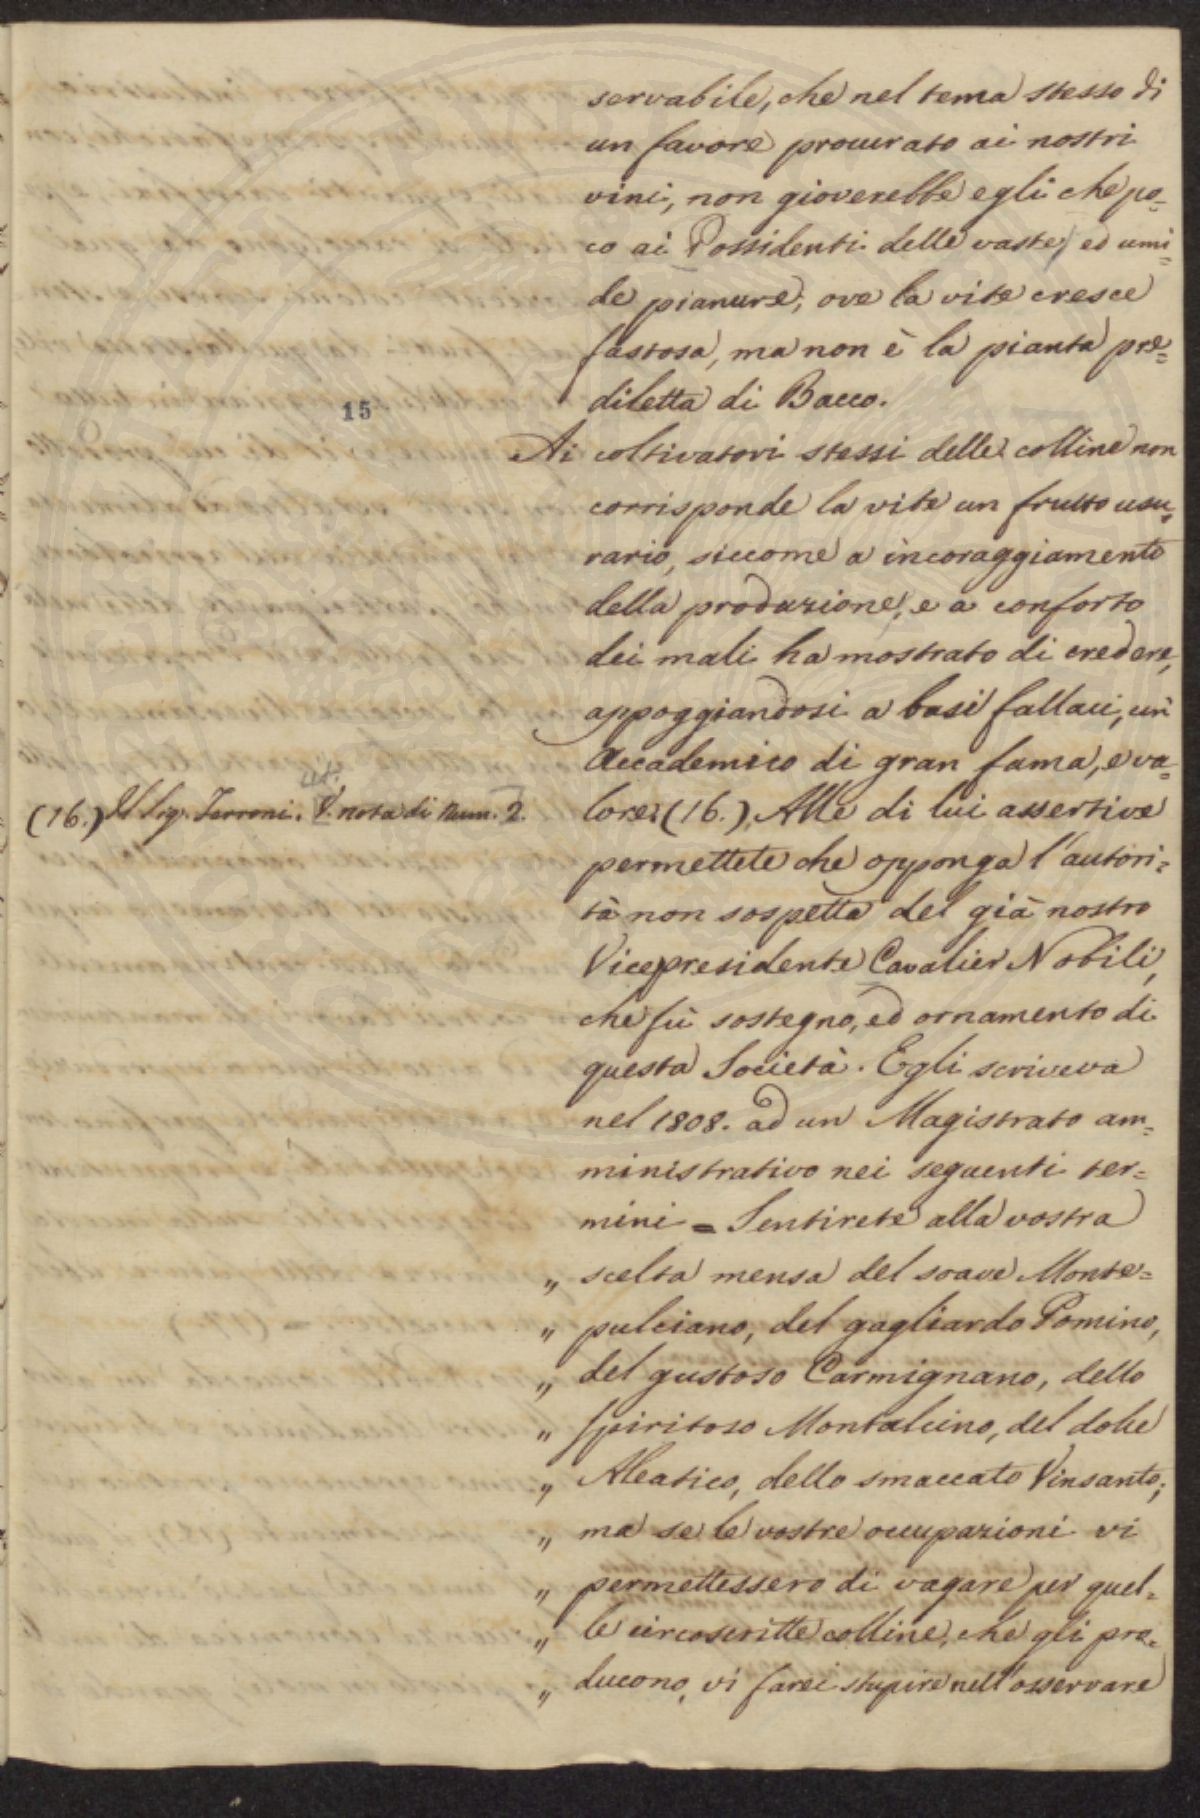 servabile, che nel tema stesso di
un favore procurato ai nostri
vini, non gioverebbe egli che po-
co ai Possidenti delle vaste, ed umi=
de pianure, ove la vite cresce
fastosa, ma non è la pianta pre=
diletta di Bacco.
15
Ai coltivatori stessi delle colline non
corrisponde la vite un frutto usu=
rario, siccome a incoraggiamento
della produzione, e a conforto
dei mali ha mostrato di credere,
appoggiandosi a basi fallaci, un
Accademico di gran fama, e va=
lore (16.). Alle di lui assertive
(16.) Il Sig. Ferroni. V. cit. nota di Num. 2.
permettete che opponga l'autori=
tà non sospetta del già nostro
Vicepresidente Cavalier Nobili,
che fù sostegno, ed ornamento di
questa Società. Egli scriveva
nel 1808. ad un Magistrato am=
ministrativo nei seguenti ter=
mini = Sentirete alla vostra
„ scelta mensa del soave Monte=
„ pulciano, del gagliardo Pomino,
„ del gustoso Carmignano, dello
„ spiritoso Montalcino, del dolce
„ Aleatico, dello smaccato Vinsanto;
„ ma se le vostre occupazioni vi
„ permettessero di vagare per quel=
„ le circoscritte colline, che gli pro=
„ ducono, vi farei stupire nell'osservare